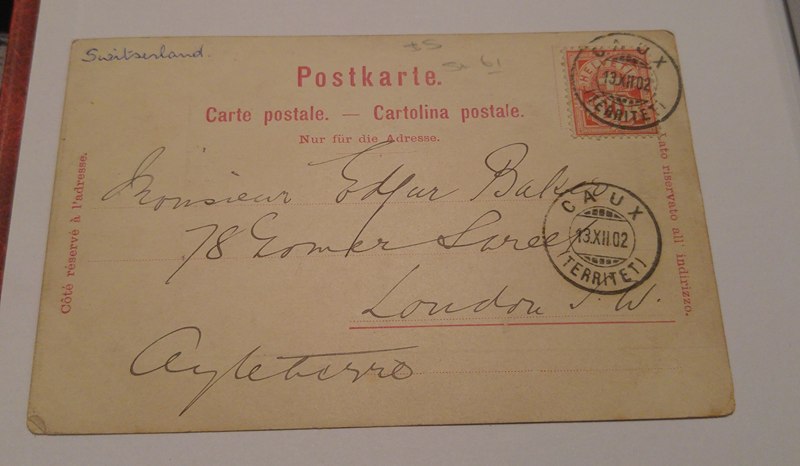 Switserland.
Postkarte.
Carte postale. — Cartolina postale.
Nur für die Adresse.
HELVETIA
CAUX
13.XII.02
(TERRITET)
Côté réservé à l'adresse.
Lato riservato all' indirizzo.
Monsieur Edgar
78 Gomer Street
London S.W.
Angleterre
CAUX
13.XII.02
(TERRITET)